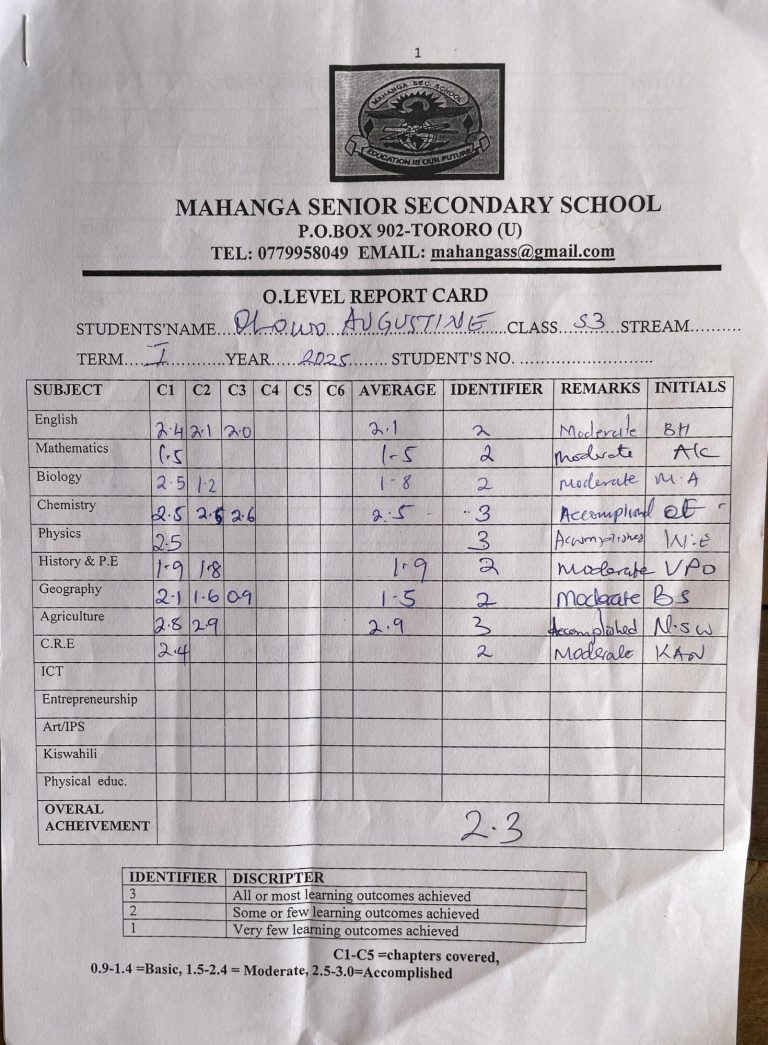 1
MAHANGA SEC. SCHOOL
EDUCATION IS OUR FUTURE
MAHANGA SENIOR SECONDARY SCHOOL
P.O.BOX 902-TORORO (U)
TEL: 0779958049 EMAIL: mahangass@gmail.com
O.LEVEL REPORT CARD
STUDENTS'NAME....OLOWO AUGUSTINE....CLASS...S3...STREAM..........
TERM....I............YEAR.....2025........ STUDENT'S NO. ...........................
SUBJECT C1 C2 C3 C4 C5 C6 AVERAGE IDENTIFIER REMARKS INITIALS
English 2.4 2.1 2.0 2.1 2 Moderate BH
Mathematics 1.5 1.5 2 Moderate
Biology 2.5 1.2 1.8 2 Moderate M.A
Chemistry 2.5 2.5 2.6 2.5 3 Accomplished
Physics 2.5 3 Accomplished
History & P.E 1.9 1.8 1.9 2 Moderate VPO
Geography 2.1 1.6 0.9 1.5 2 Moderate BS
Agriculture 2.8 2.9 2.9 3 Accomplished N.SW
C.R.E 2.4 2 Moderate KAN
ICT
Entrepreneurship
Art/IPS
Kiswahili
Physical educ.
OVERAL ACHEIVEMENT 2.3
IDENTIFIER DISCRIPTER
3 All or most learning outcomes achieved
2 Some or few learning outcomes achieved
1 Very few learning outcomes achieved
C1-C5 =chapters covered,
0.9-1.4 =Basic, 1.5-2.4 = Moderate, 2.5-3.0=Accomplished